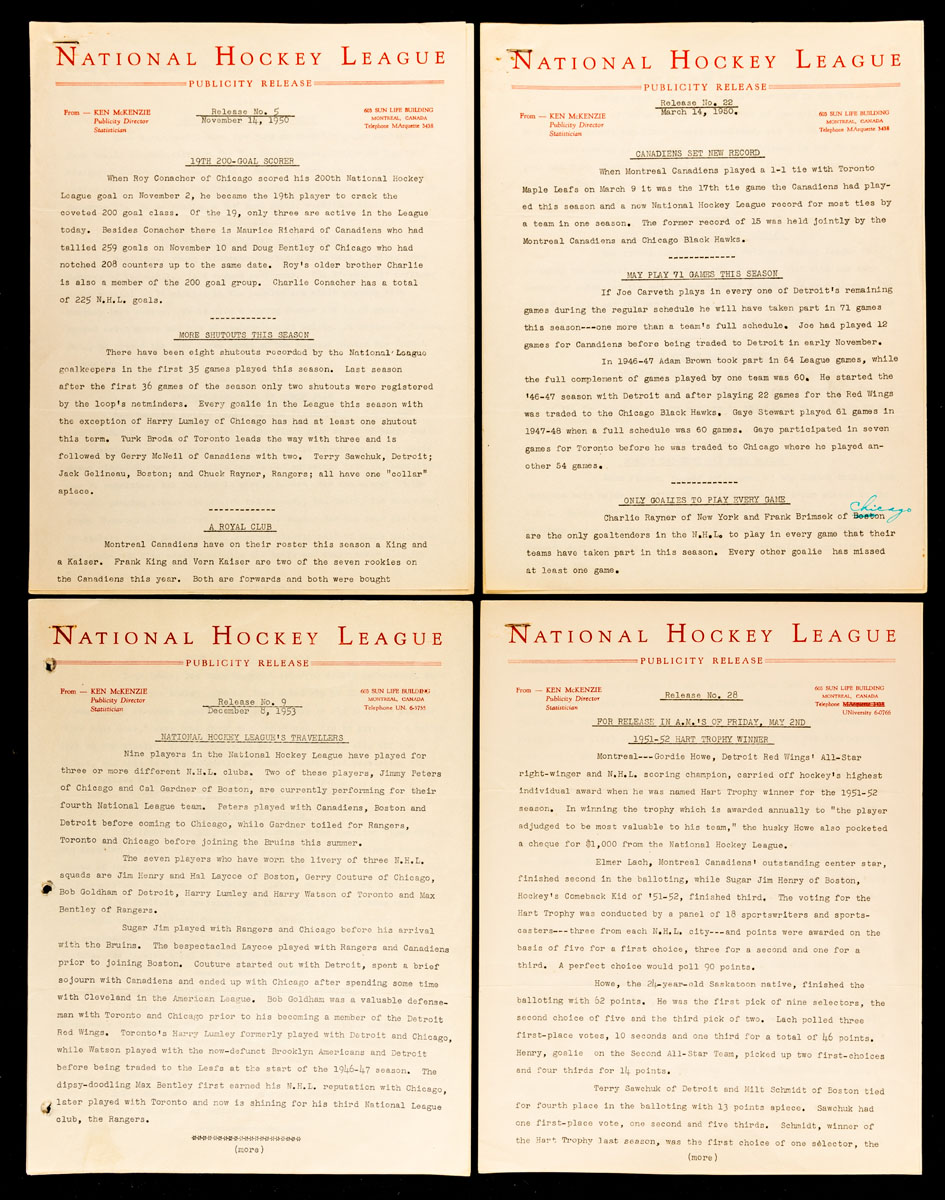 NATIONAL HOCKEY LEAGUE
PUBLICITY RELEASE
From — KEN McKENZIE
Publicity Director
Statistician
Release No. 5
November 14, 1950
603 SUN LIFE BUILDING
MONTREAL, CANADA
Telephone MArquette 3438
19TH 200-GOAL SCORER
When Roy Conacher of Chicago scored his 200th National Hockey
League goal on November 2, he became the 19th player to crack the
coveted 200 goal class. Of the 19, only three are active in the League
today. Besides Conacher there is Maurice Richard of Canadiens who had
tallied 259 goals on November 10 and Doug Bentley of Chicago who had
notched 208 counters up to the same date. Roy's older brother Charlie
is also a member of the 200 goal group. Charlie Conacher has a total
of 225 N.H.L. goals.
-------------
MORE SHUTOUTS THIS SEASON
There have been eight shutouts recorded by the National League
goalkeepers in the first 35 games played this season. Last season
after the first 36 games of the season only two shutouts were registered
by the loop's netminders. Every goalie in the League this season with
the exception of Harry Lumley of Chicago has had at least one shutout
this term. Turk Broda of Toronto leads the way with three and is
followed by Gerry McNeil of Canadiens with two. Terry Sawchuk, Detroit;
Jack Gelineau, Boston; and Chuck Rayner, Rangers; all have one "collar"
apiece.
-------------
A ROYAL CLUB
Montreal Canadiens have on their roster this season a King and
a Kaiser. Frank King and Vern Kaiser are two of the seven rookies on
the Canadiens this year. Both are forwards and both were bought
NATIONAL HOCKEY LEAGUE
PUBLICITY RELEASE
From — KEN McKENZIE
Publicity Director
Statistician
Release No. 22
March 14, 1950.
603 SUN LIFE BUILDING
MONTREAL, CANADA
Telephone MArquette 3438
CANADIENS SET NEW RECORD
When Montreal Canadiens played a 1-1 tie with Toronto
Maple Leafs on March 9 it was the 17th tie game the Canadiens had play-
ed this season and a now National Hockey League record for most ties by
a team in one season. The former record of 15 was held jointly by the
Montreal Canadiens and Chicago Black Hawks.
-------------
MAY PLAY 71 GAMES THIS SEASON
If Joe Carveth plays in every one of Detroit's remaining
games during the regular schedule he will have taken part in 71 games
this season---one more than a team's full schedule. Joe had played 12
games for Canadiens before being traded to Detroit in early November.
In 1946-47 Adam Brown took part in 64 League games, while
the full complement of games played by one team was 60. He started the
'46-47 season with Detroit and after playing 22 games for the Red Wings
was traded to the Chicago Black Hawks. Gaye Stewart played 61 games in
1947-48 when a full schedule was 60 games. Gaye participated in seven
games for Toronto before he was traded to Chicago where he played an-
other 54 games.
-------------
ONLY GOALIES TO PLAY EVERY GAME
Chicago
Charlie Rayner of New York and Frank Brimsek of Boston
are the only goaltenders in the N.H.L. to play in every game that their
teams have taken part in this season. Every other goalie has missed
at least one game.
NATIONAL HOCKEY LEAGUE
PUBLICITY RELEASE
From — KEN McKENZIE
Publicity Director
Statistician
Release No. 9
December 8, 1953
603 SUN LIFE BUILDING
MONTREAL, CANADA
Telephone UN. 6-3735
NATIONAL HOCKEY LEAGUE'S TRAVELLERS
Nine players in the National Hockey League have played for
three or more different N.H.L. clubs. Two of these players, Jimmy Peters
of Chicago and Cal Gardner of Boston, are currently performing for their
fourth National League team. Peters played with Canadiens, Boston and
Detroit before coming to Chicago, while Gardner toiled for Rangers,
Toronto and Chicago before joining the Bruins this summer.
The seven players who have worn the livery of three N.H.L.
squads are Jim Henry and Hal Laycoe of Boston, Gerry Couture of Chicago,
Bob Goldham of Detroit, Harry Lumley and Harry Watson of Toronto and Max
Bentley of Rangers.
Sugar Jim played with Rangers and Chicago before his arrival
with the Bruins. The bespectacled Laycoe played with Rangers and Canadiens
prior to joining Boston. Couture started out with Detroit, spent a brief
sojourn with Canadiens and ended up with Chicago after spending some time
with Cleveland in the American League. Bob Goldham was a valuable defense-
man with Toronto and Chicago prior to his becoming a member of the Detroit
Red Wings. Toronto's Harry Lumley formerly played with Detroit and Chicago,
while Watson played with the now-defunct Brooklyn Americans and Detroit
before being traded to the Leafs at the start of the 1946-47 season. The
dipsy-doodling Max Bentley first earned his N.H.L. reputation with Chicago,
later played with Toronto and now is shining for his third National League
club, the Rangers.
(more)
NATIONAL HOCKEY LEAGUE
PUBLICITY RELEASE
From — KEN McKENZIE
Publicity Director
Statistician
Release No. 28
603 SUN LIFE BUILDING
MONTREAL, CANADA
Telephone MArquette 3438
UNiversity 6-0766
FOR RELEASE IN A.M.'S OF FRIDAY, MAY 2ND
1951-52 HART TROPHY WINNER
Montreal---Gordie Howe, Detroit Red Wings' All-Star
right-winger and N.H.L. scoring champion, carried off hockey's highest
individual award when he was named Hart Trophy winner for the 1951-52
season. In winning the trophy which is awarded annually to "the player
adjudged to be most valuable to his team," the husky Howe also pocketed
a cheque for $1,000 from the National Hockey League.
Elmer Lach, Montreal Canadiens' outstanding center star,
finished second in the balloting, while Sugar Jim Henry of Boston,
Hockey's Comeback Kid of '51-52, finished third. The voting for the
Hart Trophy was conducted by a panel of 18 sportswriters and sports-
casters---three from each N.H.L. city---and points were awarded on the
basis of five for a first choice, three for a second and one for a
third. A perfect choice would poll 90 points.
Howe, the 24-year-old Saskatoon native, finished the
balloting with 62 points. He was the first pick of nine selectors, the
second choice of five and the third pick of two. Lach polled three
first-place votes, 10 seconds and one third for a total of 46 points.
Henry, goalie on the Second All-Star Team, picked up two first-choices
and four thirds for 14 points.
Terry Sawchuk of Detroit and Milt Schmidt of Boston tied
for fourth place in the balloting with 13 points apiece. Sawchuk had
one first-place vote, one second and five thirds. Schmidt, winner of
the Hart Trophy last season, was the first choice of one selector, the
(more)